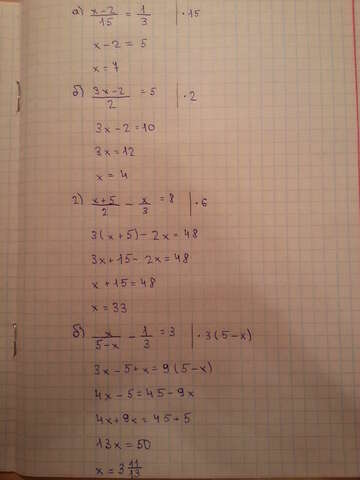 а) x-2/15 = 1/3 | ·15
x-2 = 5
x = 7
б) 3x-2/2 = 5 | ·2
3x-2=10
3x=12
x = 4
г) x+5/2 - x/3 = 8 | ·6
3(x+5)-2x=48
3x+15-2x=48
x+15=48
x=33
б) x/5-x - 1/3 = 3 | ·3(5-x)
3x-5+x=9(5-x)
4x-5=45-9x
4x+9x=45+5
13x=50
x=3 11/13